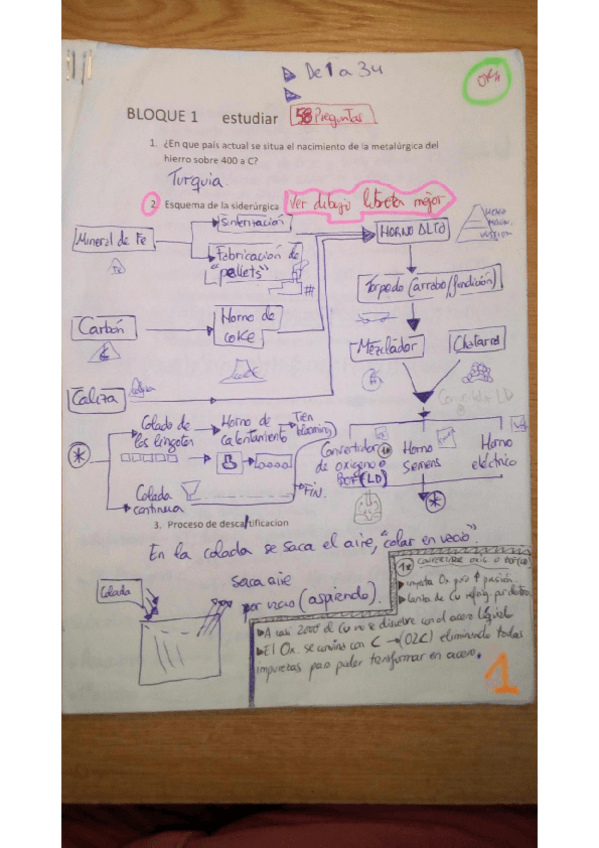 De 1 a 34
BLOQUE 1 estudiar 58 Preguntas
1. ¿En que país actual se situa el nacimiento de la metalúrgica del
hierro sobre 400 a C?
Turquia.
2. Esquema de la siderúrgica Ver dibujo libreta mejor
Mineral de Fe
Sinterización
Fabricación de
"pellets"
HORNO ALTO
Torpedo (arrabo/fundición)
Carbón
Horno de
coke
Mezclador
Chatarra
Caliza
Colada de
los lingotes
Horno de
calentamiento
Tren
blooming
Colada
continua
FIN.
Convertidor LD
Convertidor 1*
de oxigeno o
BOF (LD)
Horno
Siemens
Horno
eléctrico
3. Proceso de descatificacion
En la colada se saca el aire, "colar en vacio".
Colada
saca aire
por vacio (aspiendo).
1* CONVERTIDOR OXIG. O BOF(LD)
inyecta Ox puro a presión
Lanza de Cu refrig por dentro
A casi 2000º el Cu no se disuelve con el acero líquido
El Ox. se combina con C → (O2C) eliminando todas
impurezas para poder transformar en acero.
1